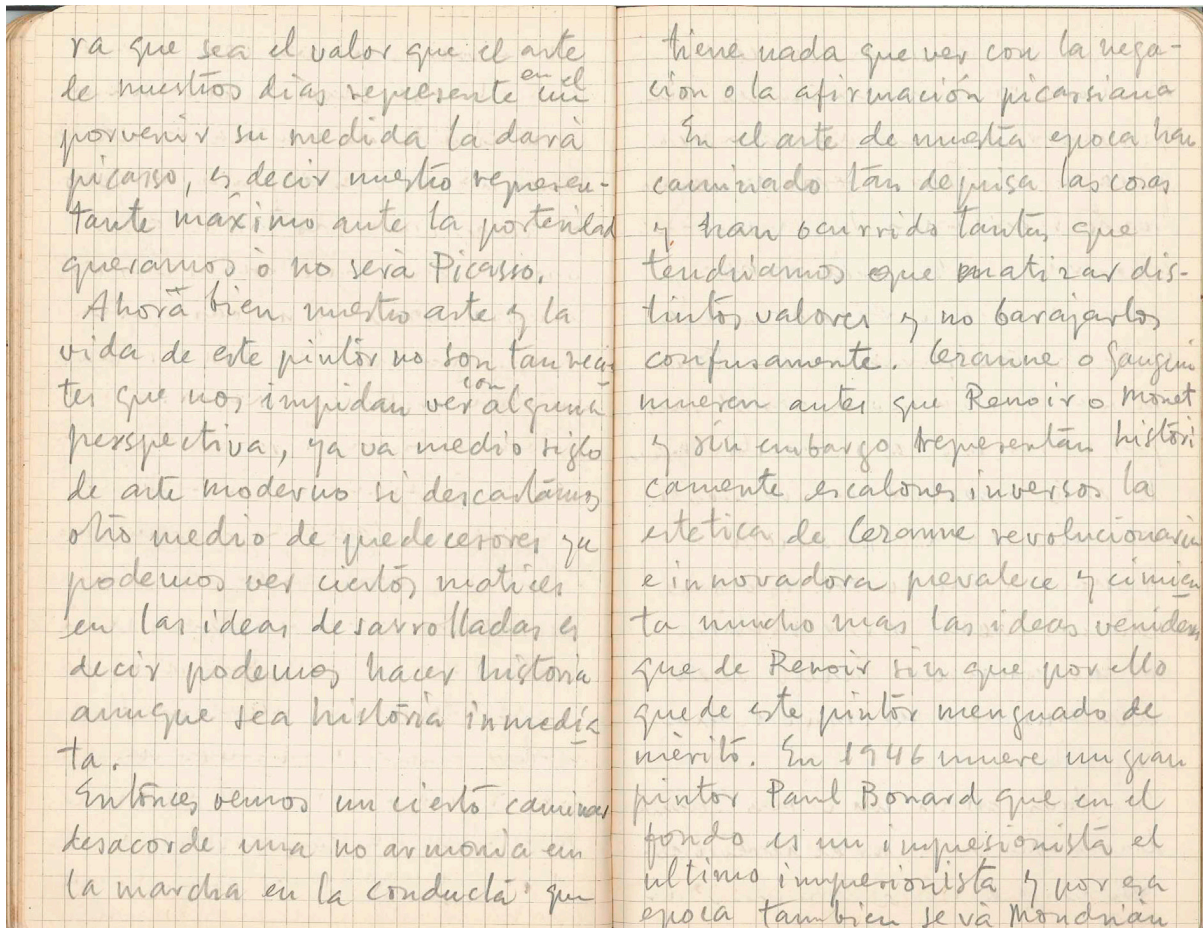 ra que sea el valor que el arte
de nuestros dias represente en el
porvenir su medida la dará
picasso, es decir nuestro represen-
tante máximo ante la posterilad
queramos o no será Picasso.
Ahora bien nuestro arte y la
vida de este pintor no son tan recien
tes que nos impidan ver con alguna
perspectiva, ya va medio siglo
de arte moderno si descartamos
otro medio de predecesores ya
podemos ver ciertos matices
en las ideas desarrolladas es
decir podemos hacer historia
aunque sea historia inmedia
ta.
Entonces vemos un cierto caminar
desacorde una no armonia en
la marcha en la conducta que
tiene nada que ver con la nega-
ción o la afirmación picassiana
En el arte de nuestra epoca han
caminado tan deprisa las cosas
y han ocurrido tantas que
tendriamos que matizar dis-
tintos valores y no barajarlos
confusamente. Cezanne o Gauguin
mueren antes que Renoir o Monet
y sin embargo representan históri
camente escalones inversos la
estetica de Cezanne revolucionaria
e innovadora prevalece y cimien
ta mucho mas las ideas venideras
que de Renoir sin que por ello
quede este pintor menguado de
mérito. En 1946 muere un gran
pintor Paul Bonard que en el
fondo es un impresionista el
ultimo impresionista y por esa
epoca tambien se va Mondrián